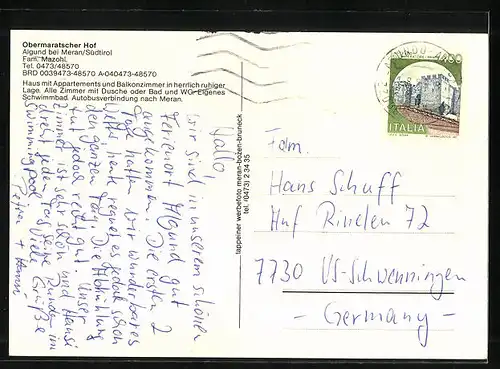 Obermaratscher Hof
Algund bei Meran/Südtirol
Fam. Mazohl
Tel. 0473/48570
BRD 0039473-48570 A-040473-48570
Haus mit Appartements und Balkonzimmer in herrlich ruhiger
Lage. Alle Zimmer mit Dusche oder Bad und WC. Eigenes
Schwimmbad. Autobusverbindung nach Meran.
Hallo,
wir sind in unserem schönen
Ferienort Algund gut
angekommen. Die ersten 2
Tage hatten wir wunderbares
Wetter, heute regnet es jedoch schon
den ganzen Tag. Die Abkühlung
tut jedoch recht gut. Unser
Zimmer ist sehr schön und Hansi
dreht jeden Tag seine Runden im
Swimmingpool. Viele Grüße
Petra +
tappeiner werbefoto meran-bozen-bruneck
tel. (0473) 2 34 35
ITALIA
Fam.
Hans Schuff
Auf Rinelen 72
7730 VS-Schwenningen
- Germany -